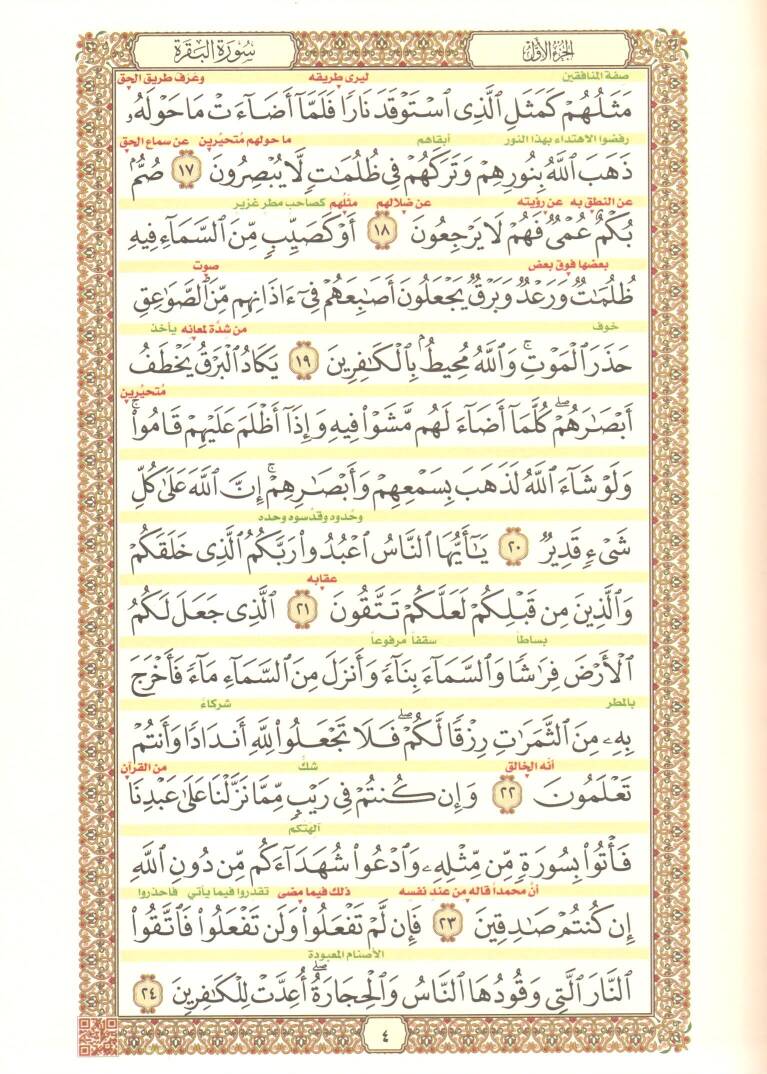 الجزء الأول
سورة البقرة
صفة المنافقين ليرى طريقه وعرف طريق الحق
مَثَلُهُمْ كَمَثَلِ ٱلَّذِى ٱسْتَوْقَدَ نَارًا فَلَمَّآ أَضَآءَتْ مَا حَوْلَهُۥ
رفضوا الاهتداء بهذا النور أبقاهم ما حولهم مُتحيّرين عن سماع الحق
ذَهَبَ ٱللَّهُ بِنُورِهِمْ وَتَرَكَهُمْ فِى ظُلُمَٰتٍ لَّا يُبْصِرُونَ ١٧ صُمٌّۢ
عن النطق به عن رؤيته عن ضلالهم مثلهم كصاحب مطر غزير
بُكْمٌ عُمْىٌ فَهُمْ لَا يَرْجِعُونَ ١٨ أَوْ كَصَيِّبٍ مِّنَ ٱلسَّمَآءِ فِيهِ
بعضها فوق بعض صوت
ظُلُمَٰتٌ وَرَعْدٌ وَبَرْقٌ يَجْعَلُونَ أَصَٰبِعَهُمْ فِىٓ ءَاذَانِهِم مِّنَ ٱلصَّوَٰعِقِ
خوف من شدّة لمعانه يأخذ
حَذَرَ ٱلْمَوْتِ ۚ وَٱللَّهُ مُحِيطٌۢ بِٱلْكَٰفِرِينَ ١٩ يَكَادُ ٱلْبَرْقُ يَخْطَفُ
مُتحيّرين
أَبْصَٰرَهُمْ ۖ كُلَّمَآ أَضَآءَ لَهُم مَّشَوْا۟ فِيهِ وَإِذَآ أَظْلَمَ عَلَيْهِمْ قَامُوا۟ ۚ
وَلَوْ شَآءَ ٱللَّهُ لَذَهَبَ بِسَمْعِهِمْ وَأَبْصَٰرِهِمْ ۚ إِنَّ ٱللَّهَ عَلَىٰ كُلِّ
وحّدوه وقدّسوه وحده
شَىْءٍ قَدِيرٌ ٢٠ يَٰٓأَيُّهَا ٱلنَّاسُ ٱعْبُدُوا۟ رَبَّكُمُ ٱلَّذِى خَلَقَكُمْ
عقابه
وَٱلَّذِينَ مِن قَبْلِكُمْ لَعَلَّكُمْ تَتَّقُونَ ٢١ ٱلَّذِى جَعَلَ لَكُمُ
بساطاً سقفاً مرفوعاً
ٱلْأَرْضَ فِرَٰشًا وَٱلسَّمَآءَ بِنَآءً وَأَنزَلَ مِنَ ٱلسَّمَآءِ مَآءً فَأَخْرَجَ
بالمطر شركاءَ
بِهِۦ مِنَ ٱلثَّمَرَٰتِ رِزْقًا لَّكُمْ ۖ فَلَا تَجْعَلُوا۟ لِلَّهِ أَندَادًا وَأَنتُمْ
أنّه الخالق شكّ من القرآن
تَعْلَمُونَ ٢٢ وَإِن كُنتُمْ فِى رَيْبٍ مِّمَّا نَزَّلْنَا عَلَىٰ عَبْدِنَا
آلهتكم
فَأْتُوا۟ بِسُورَةٍ مِّن مِّثْلِهِۦ وَٱدْعُوا۟ شُهَدَآءَكُم مِّن دُونِ ٱللَّهِ
أن محمداً قاله من عند نفسه ذلك فيما مضى تقدروا فيما يأتي فاحذروا
إِن كُنتُمْ صَٰدِقِينَ ٢٣ فَإِن لَّمْ تَفْعَلُوا۟ وَلَن تَفْعَلُوا۟ فَٱتَّقُوا۟
الأصنام المعبودة
ٱلنَّارَ ٱلَّتِى وَقُودُهَا ٱلنَّاسُ وَٱلْحِجَارَةُ ۖ أُعِدَّتْ لِلْكَٰفِرِينَ ٢٤
٤